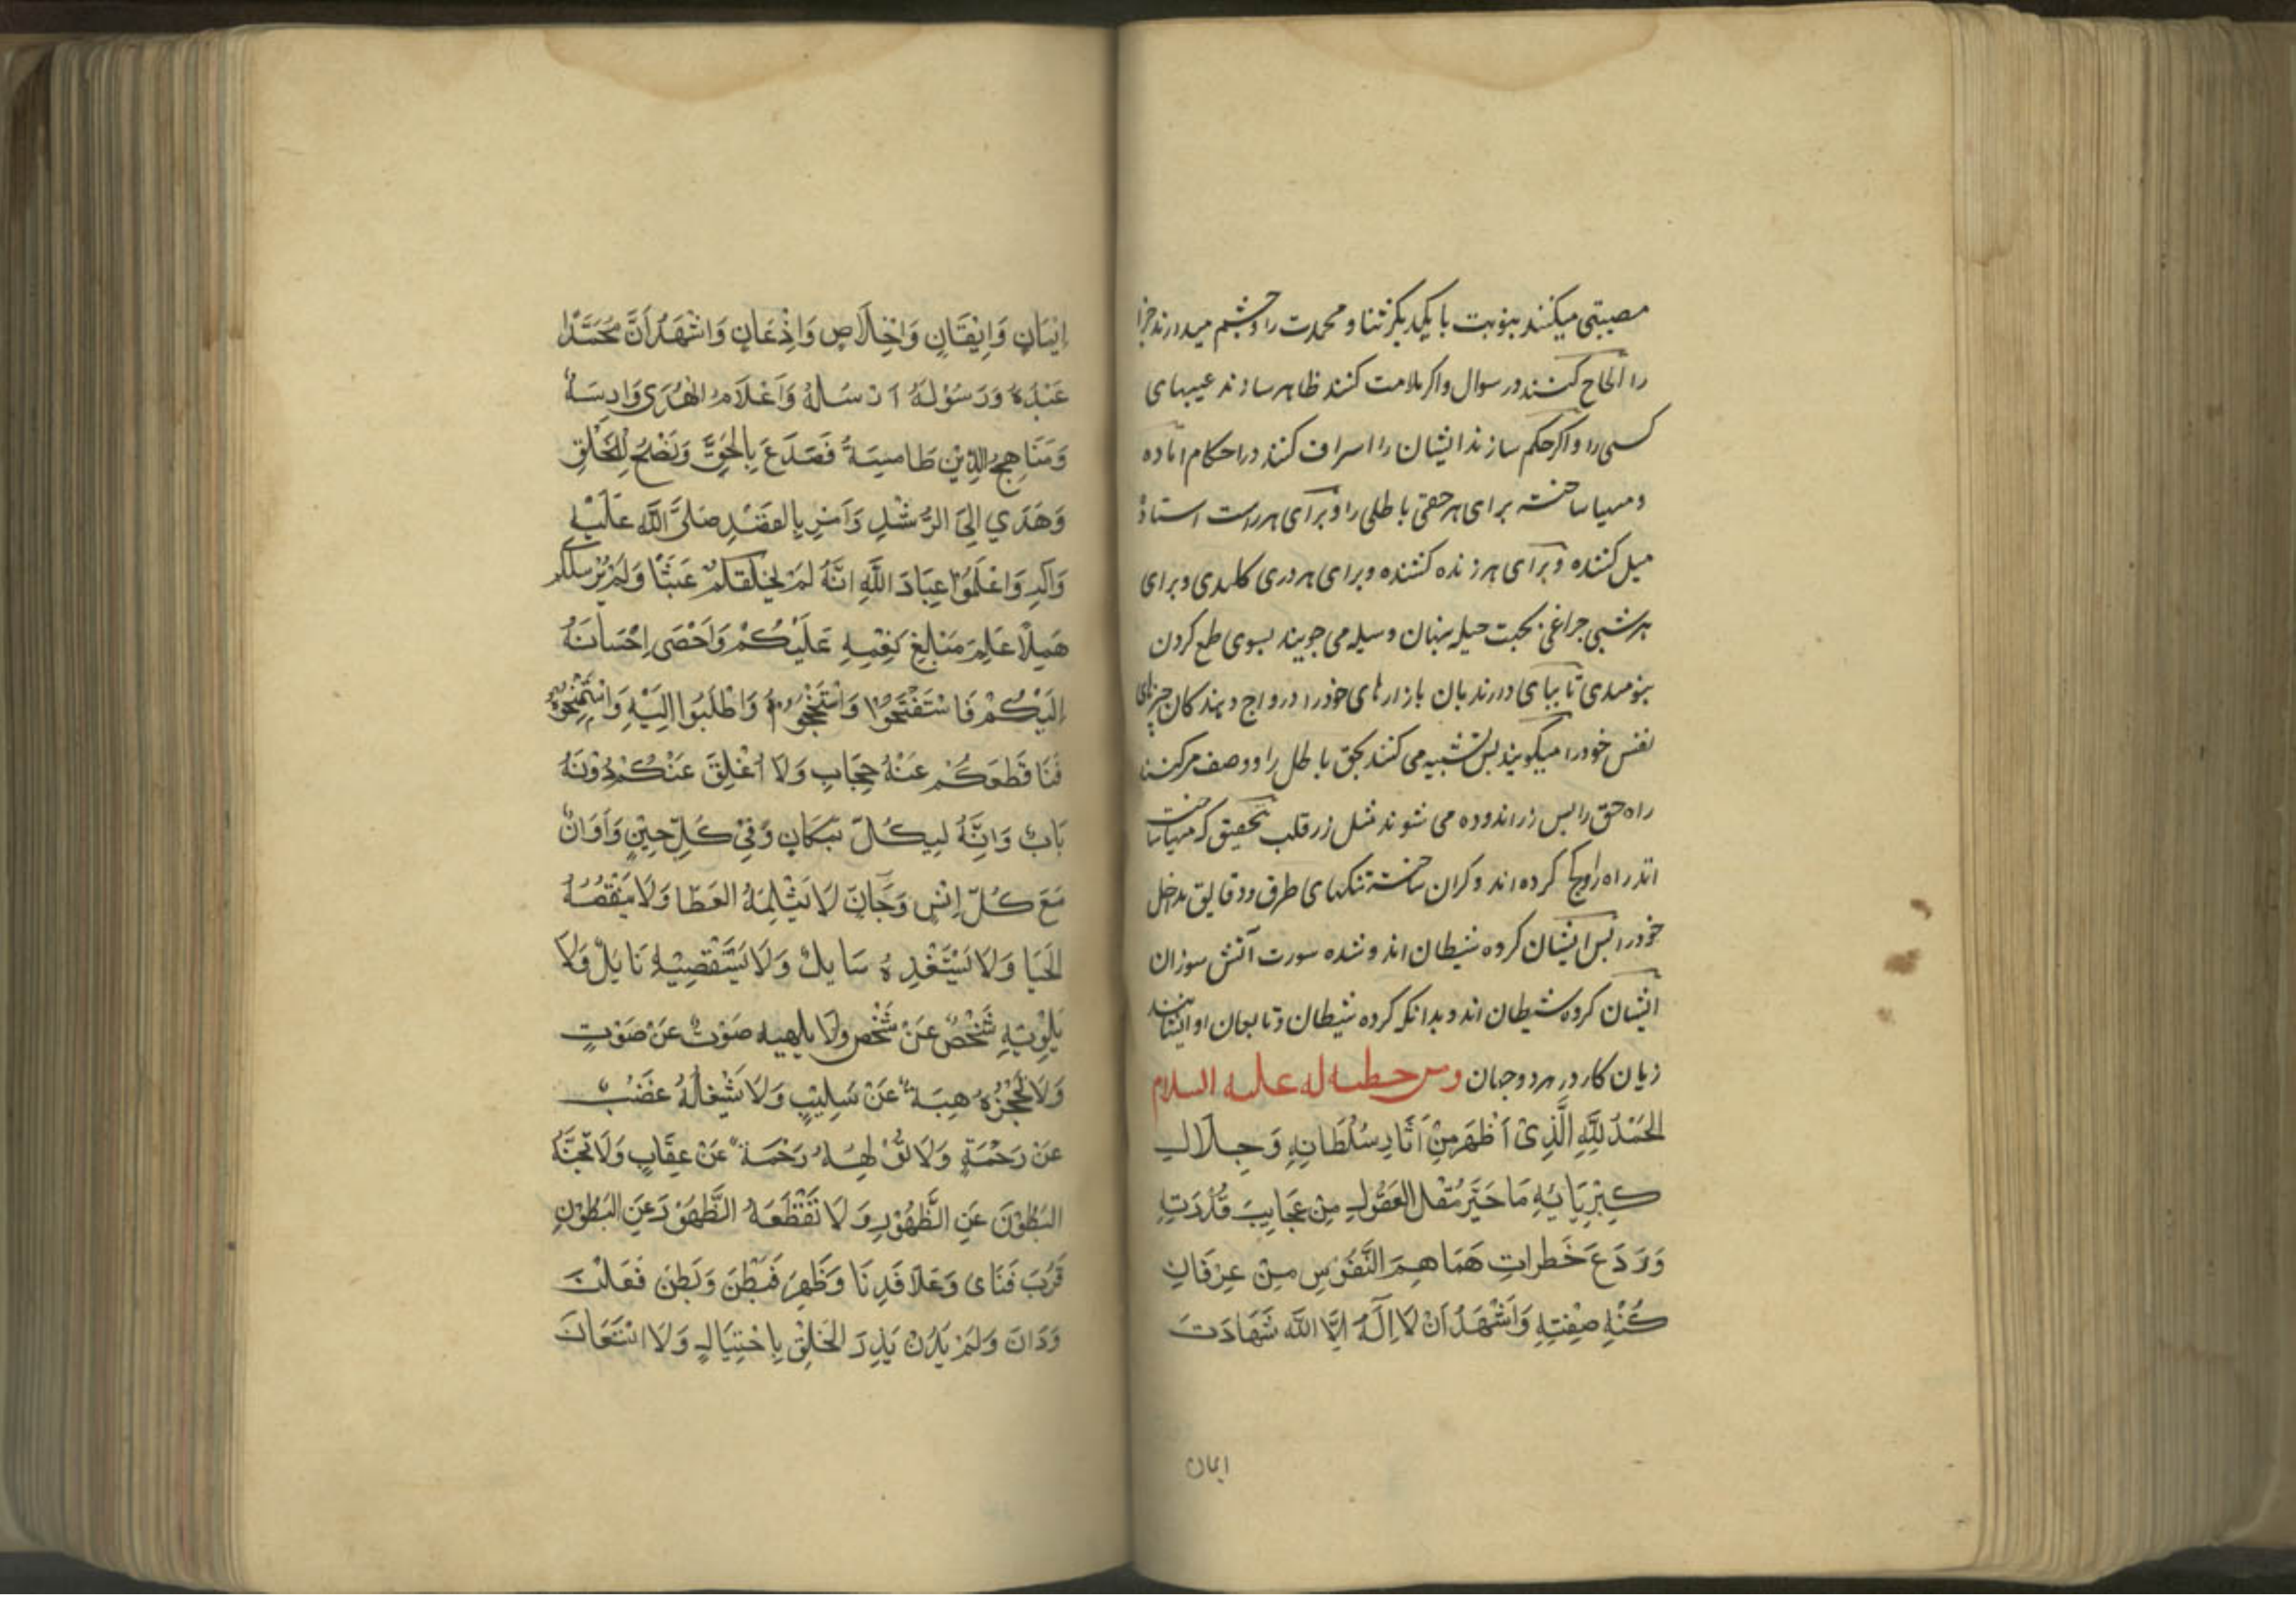 مصیبتی میکنند بنوبت با یکدیگر ثنا و محمدت را و چشم میدارند جزا
را الحاح کنند در سوال و اکر ملامت کنند ظاهر سازند عیبهای
کسی را و اکر حکم سازند ایشان را اسراف کنند در احکام اماده
و مهیا ساخته برای هر حقی باطلی را و برای هر راست استاده
میل کننده و برای هر زنده کشنده و برای هر دری کلیدی و برای
هر شبی چراغی بحجت حیله پنهان وسیله می جویند بسوی طمع کردن
بنومیدی تا بپای دارند بان بازارهای خود را و رواج دهند کان چیزهای
نفس خود را میکویند پس تشبیه می کنند بحق باطل را و وصف مرکنند
راه حق را پس زر اندوده می شوند مثل زر قلب بتحقیق که مهیا ساخت
اند راه را و کج کرده اند و کران ساخته تنکهای طرق و دقایق مداخل
خود را پس ایشان کروه شیطان اند و شده سورت آتش سوزان
ایشان کروه شیطان اند و بدانکه کروه شیطان و تابعان او ایشانند
زیان کار در هر دو جهان ومن خطبه له علیه السلام
الحَمْدُ لِلّٰهِ الَّذِیْ اَظْهَرَ مِنْ اَثَارِ سُلْطَانِهِ وَجَلَالِ
کِبْرِیَائِهِ مَا حَیَّرَ مُقَلَ العُقُوْلِ مِنْ عَجَایِبِ قُدْرَتِهِ
وَرَدَعَ خَطَراتِ هَمَاهِمِ النُّفُوْسِ مِنْ عِرْفَانِ
کُنْهِ صِفَتِهِ وَاَشْهَدُ اَنْ لَا اِلٰهَ اِلَّا اللّٰه شَهَادَتَ
ایمان
اِیْمَانٍ وَاِیْقَانٍ وَاِخْلَاصٍ وَاِذْعَانٍ وَاَشْهَدُ اَنَّ مُحَمَّدًا
عَبْدُهُ وَرَسُوْلُهُ اَرْسَلَهُ وَاَعْلَامُ الهُدَی دَارِسَةٌ
وَمَنَاهِجُ الدِّیْنِ طَامِسَةٌ فَصَدَعَ بِالْحَقِّ وَنَصَحَ لِلْخَلْقِ
وَهَدَی اِلَی الرُّشْدِ وَاَمَرَ بِالقَصْدِ صَلَّی اللّٰه عَلَیْهِ
وَآلِهِ وَاعْلَمُوْا عِبَادَ اللّٰهِ اِنَّهُ لَمْ یَخْلُقْکُمْ عَبَثًا وَلَمْ یُرْسِلْکُمْ
هَمَلًا عَلِمَ مَبَالِغَ نِعَمِهِ عَلَیْکُمْ وَاَحْصَی اِحْسَانَهُ
اِلَیْکُمْ فَاسْتَفْتِحُوْهُ وَاسْتَنْجِحُوْهُ وَاطْلُبُوا اِلَیْهِ وَاسْتَمْنِحُوْهُ
فَمَا قَطَعَکُمْ عَنْهُ حِجَابٌ وَلَا اُغْلِقَ عَنْکُمْ دُوْنَهُ
بَابٌ وَاِنَّهُ لَبِکُلِّ مَکَانٍ وَفِیْ کُلِّ حِیْنٍ وَاَوَانٍ
مَعَ کُلِّ اِنْسٍ وَجَانٍّ لَا یَثْلِمُهُ العَطَا وَلَا یَنْقُصُهُ
الحَبَا وَلَا یَسْتَنْفِدُهُ سَایِلٌ وَلَا یَسْتَقْصِیْهِ نَایِلٌ وَلَا
یَلْوِیْهِ شَخْصٌ عَنْ شَخْصٍ وَلَا یُلْهِیهِ صَوْتٌ عَنْ صَوْتٍ
وَلَا تَحْجُزُهُ هِبَةٌ عَنْ سَلْبٍ وَلَا یَشْغَلُهُ غَضَبٌ
عَنْ رَحْمَةٍ وَلَا تُوْلِهُهُ رَحْمَةٌ عَنْ عِقَابٍ وَلَا تُجِنُّهُ
البُطُوْنُ عَنِ الظُّهُوْرِ وَلَا تَقْطَعُهُ الظُّهُوْرُ عَنِ البُطُوْنِ
قَرُبَ فَنَای وَعَلَا فَدَنَا وَظَهَرَ فَبَطَنَ وَبَطَنَ فَعَلَنَ
وَدَانَ وَلَمْ یُدَنْ لَمْ یَذْرَ الخَلْقَ بِاحْتِیَالٍ وَلَا اسْتَعَانَ